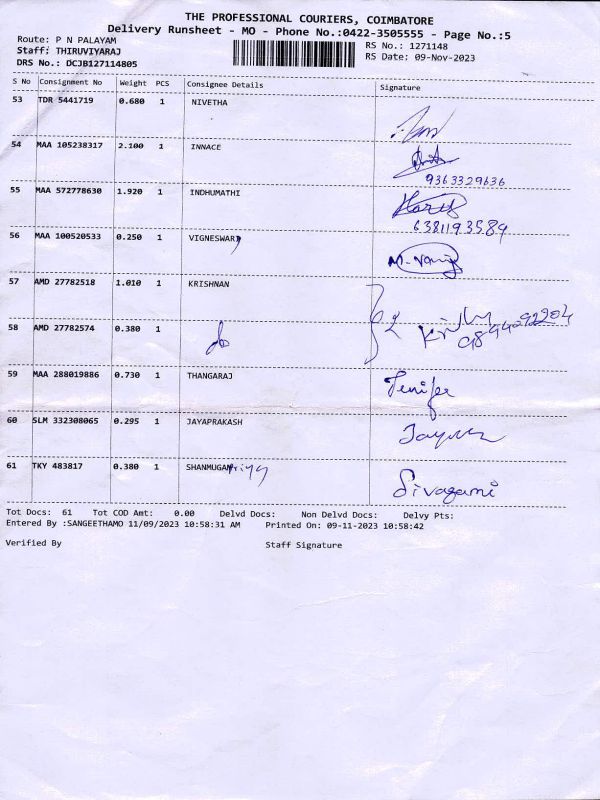 THE PROFESSIONAL COURIERS, COIMBATORE
Delivery Runsheet - MO - Phone No.:0422-3505555 - Page No.:5
Route: P N PALAYAM
RS No.: 1271148
Staff: THIRUVIYARAJ
RS Date: 09-Nov-2023
DRS No.: DCJB127114805
S No Consignment No Weight PCS Consignee Details Signature
53 TDR 5441719 0.680 1 NIVETHA
54 MAA 105238317 2.100 1 INNACE
9363329636
55 MAA 572778630 1.920 1 INDHUMATHI
6381193589
56 MAA 100520533 0.250 1 VIGNESWARI
57 AMD 27782518 1.010 1 KRISHNAN
58 AMD 27782574 0.380 1
59 MAA 288019886 0.730 1 THANGARAJ Jenifer
60 SLM 332308065 0.295 1 JAYAPRAKASH
61 TKY 483817 0.380 1 SHANMUGAPriya Sivagami
Tot Docs: 61 Tot COD Amt: 0.00 Delvd Docs: Non Delvd Docs: Delvy Pts:
Entered By :SANGEETHAMO 11/09/2023 10:58:31 AM Printed On: 09-11-2023 10:58:42
Verified By Staff Signature